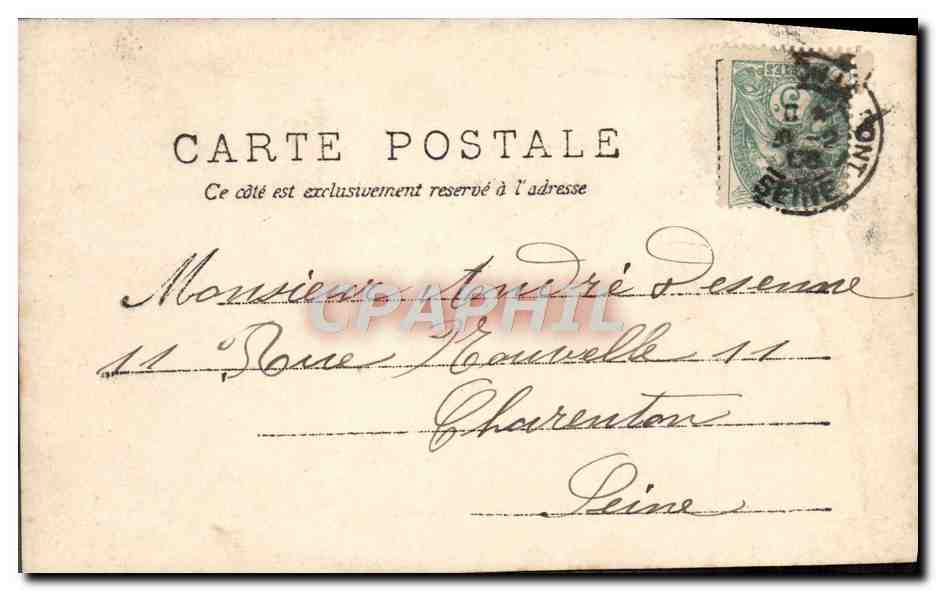 CARTE POSTALE
Ce côté est exclusivement reservé à l'adresse
5
ONT
9 -2
SEINE
Monsieur André Desenne
11 Rue Nouvelle 11
Charenton
Seine
CPAPHIL